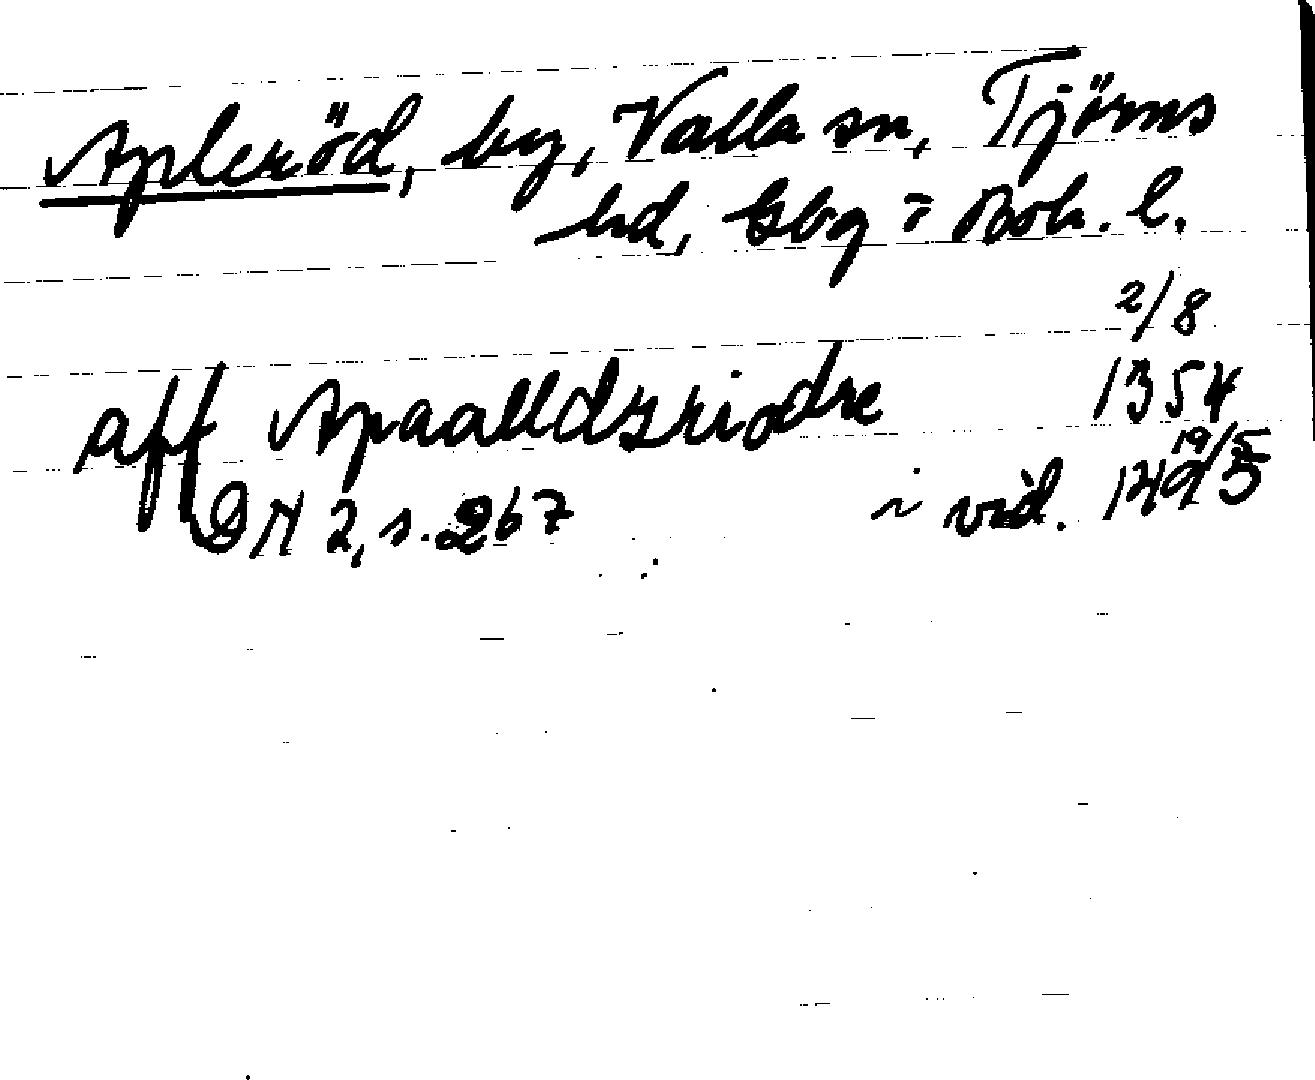 Apleröd, by, Valla sn, Tjörns
hd, Gbg o Boh. l.
2/8
aff Apaalldzriodre 1354
DN 2, s. 267 i vid. 19/5 1495